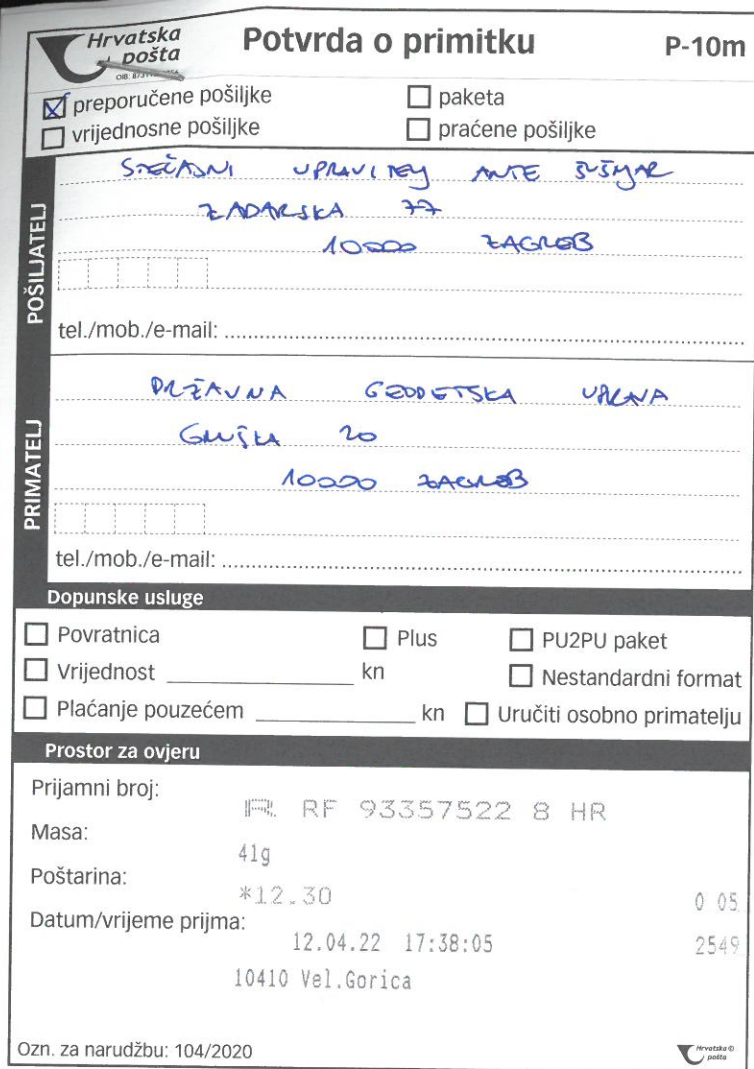 Hrvatska pošta
Potvrda o primitku
P-10m
preporučene pošiljke
paketa
vrijednosne pošiljke
praćene pošiljke
POŠILJATELJ
STEČAJNI UPRAVITELJ ANTE
ZADARSKA 77
10000 ZAGREB
tel./mob./e-mail:
PRIMATELJ
DRŽAVNA GEODETSKA UPRAVA
GRUŠKA 20
10000 ZAGREB
tel./mob./e-mail:
Dopunske usluge
Povratnica
Plus
PU2PU paket
Vrijednost kn
Nestandardni format
Plaćanje pouzećem kn
Uručiti osobno primatelju
Prostor za ovjeru
Prijamni broj:
R RF 93357522 8 HR
Masa:
41g
Poštarina:
*12.30
0 05
Datum/vrijeme prijma:
12.04.22 17:38:05
2549
10410 Vel.Gorica
Ozn. za narudžbu: 104/2020
Hrvatska pošta